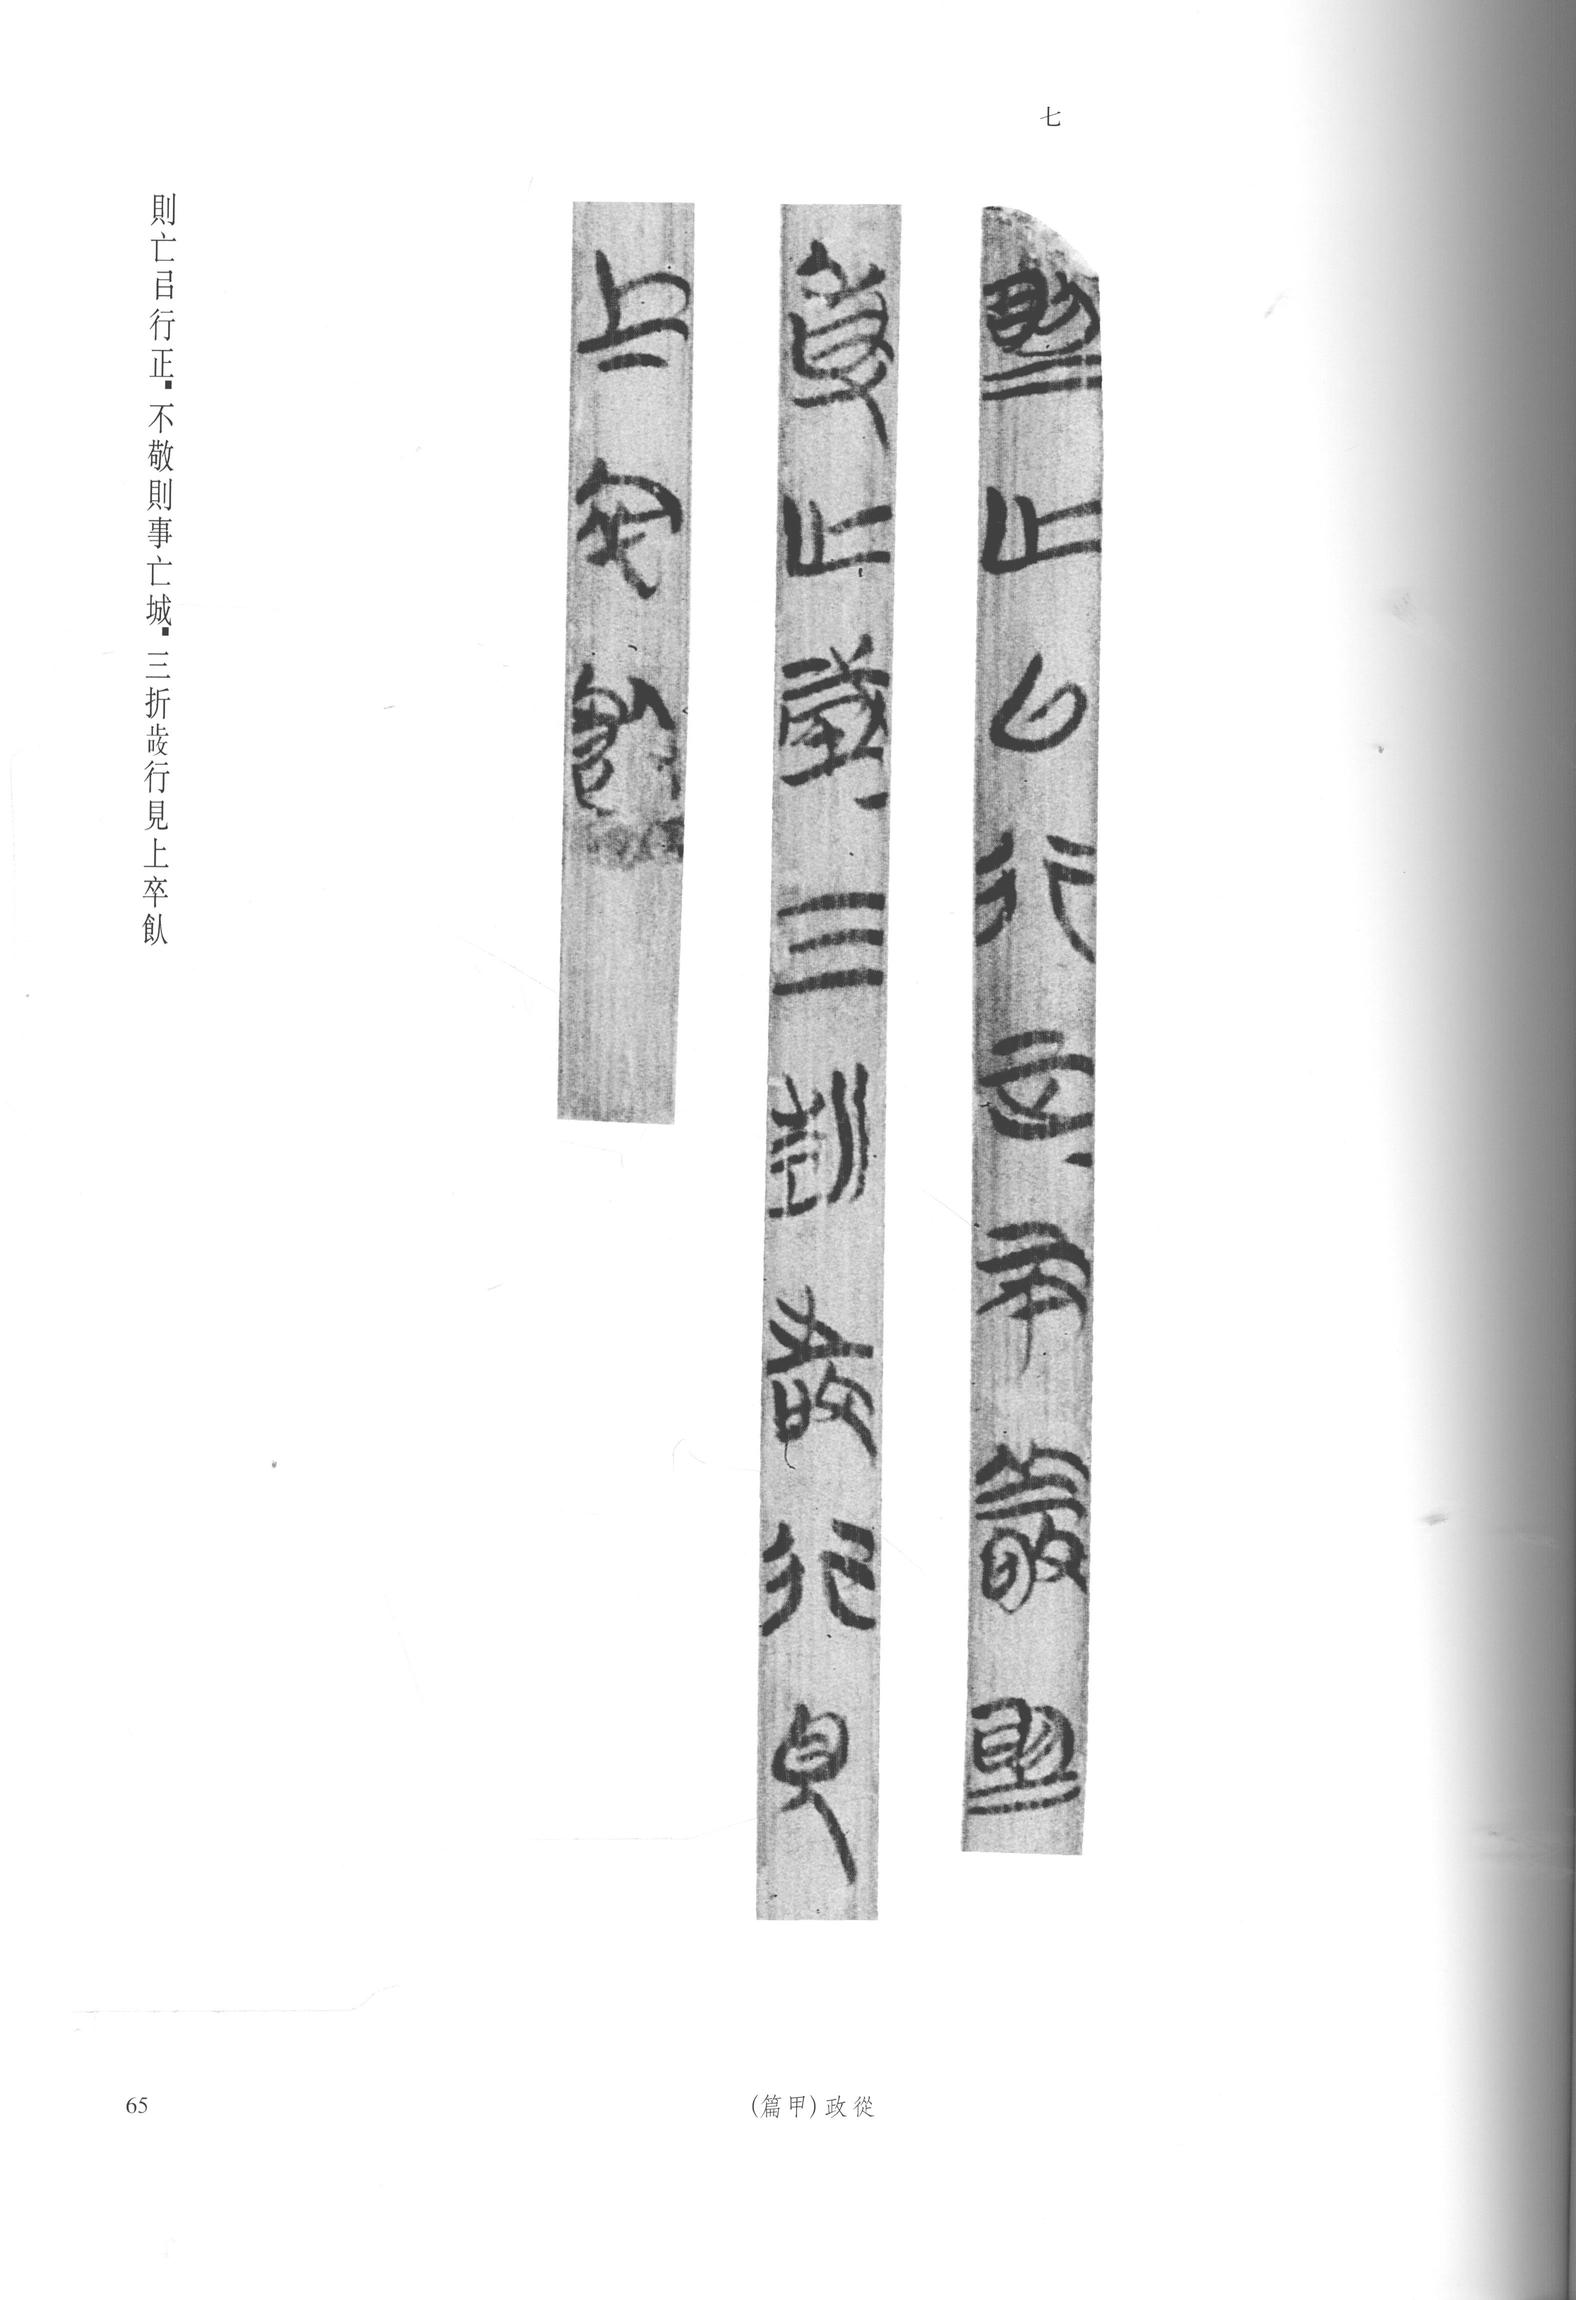 七
則亡㠯行正▪不敬則事亡城▪三折
行見上卒飤
從政(甲篇)
65